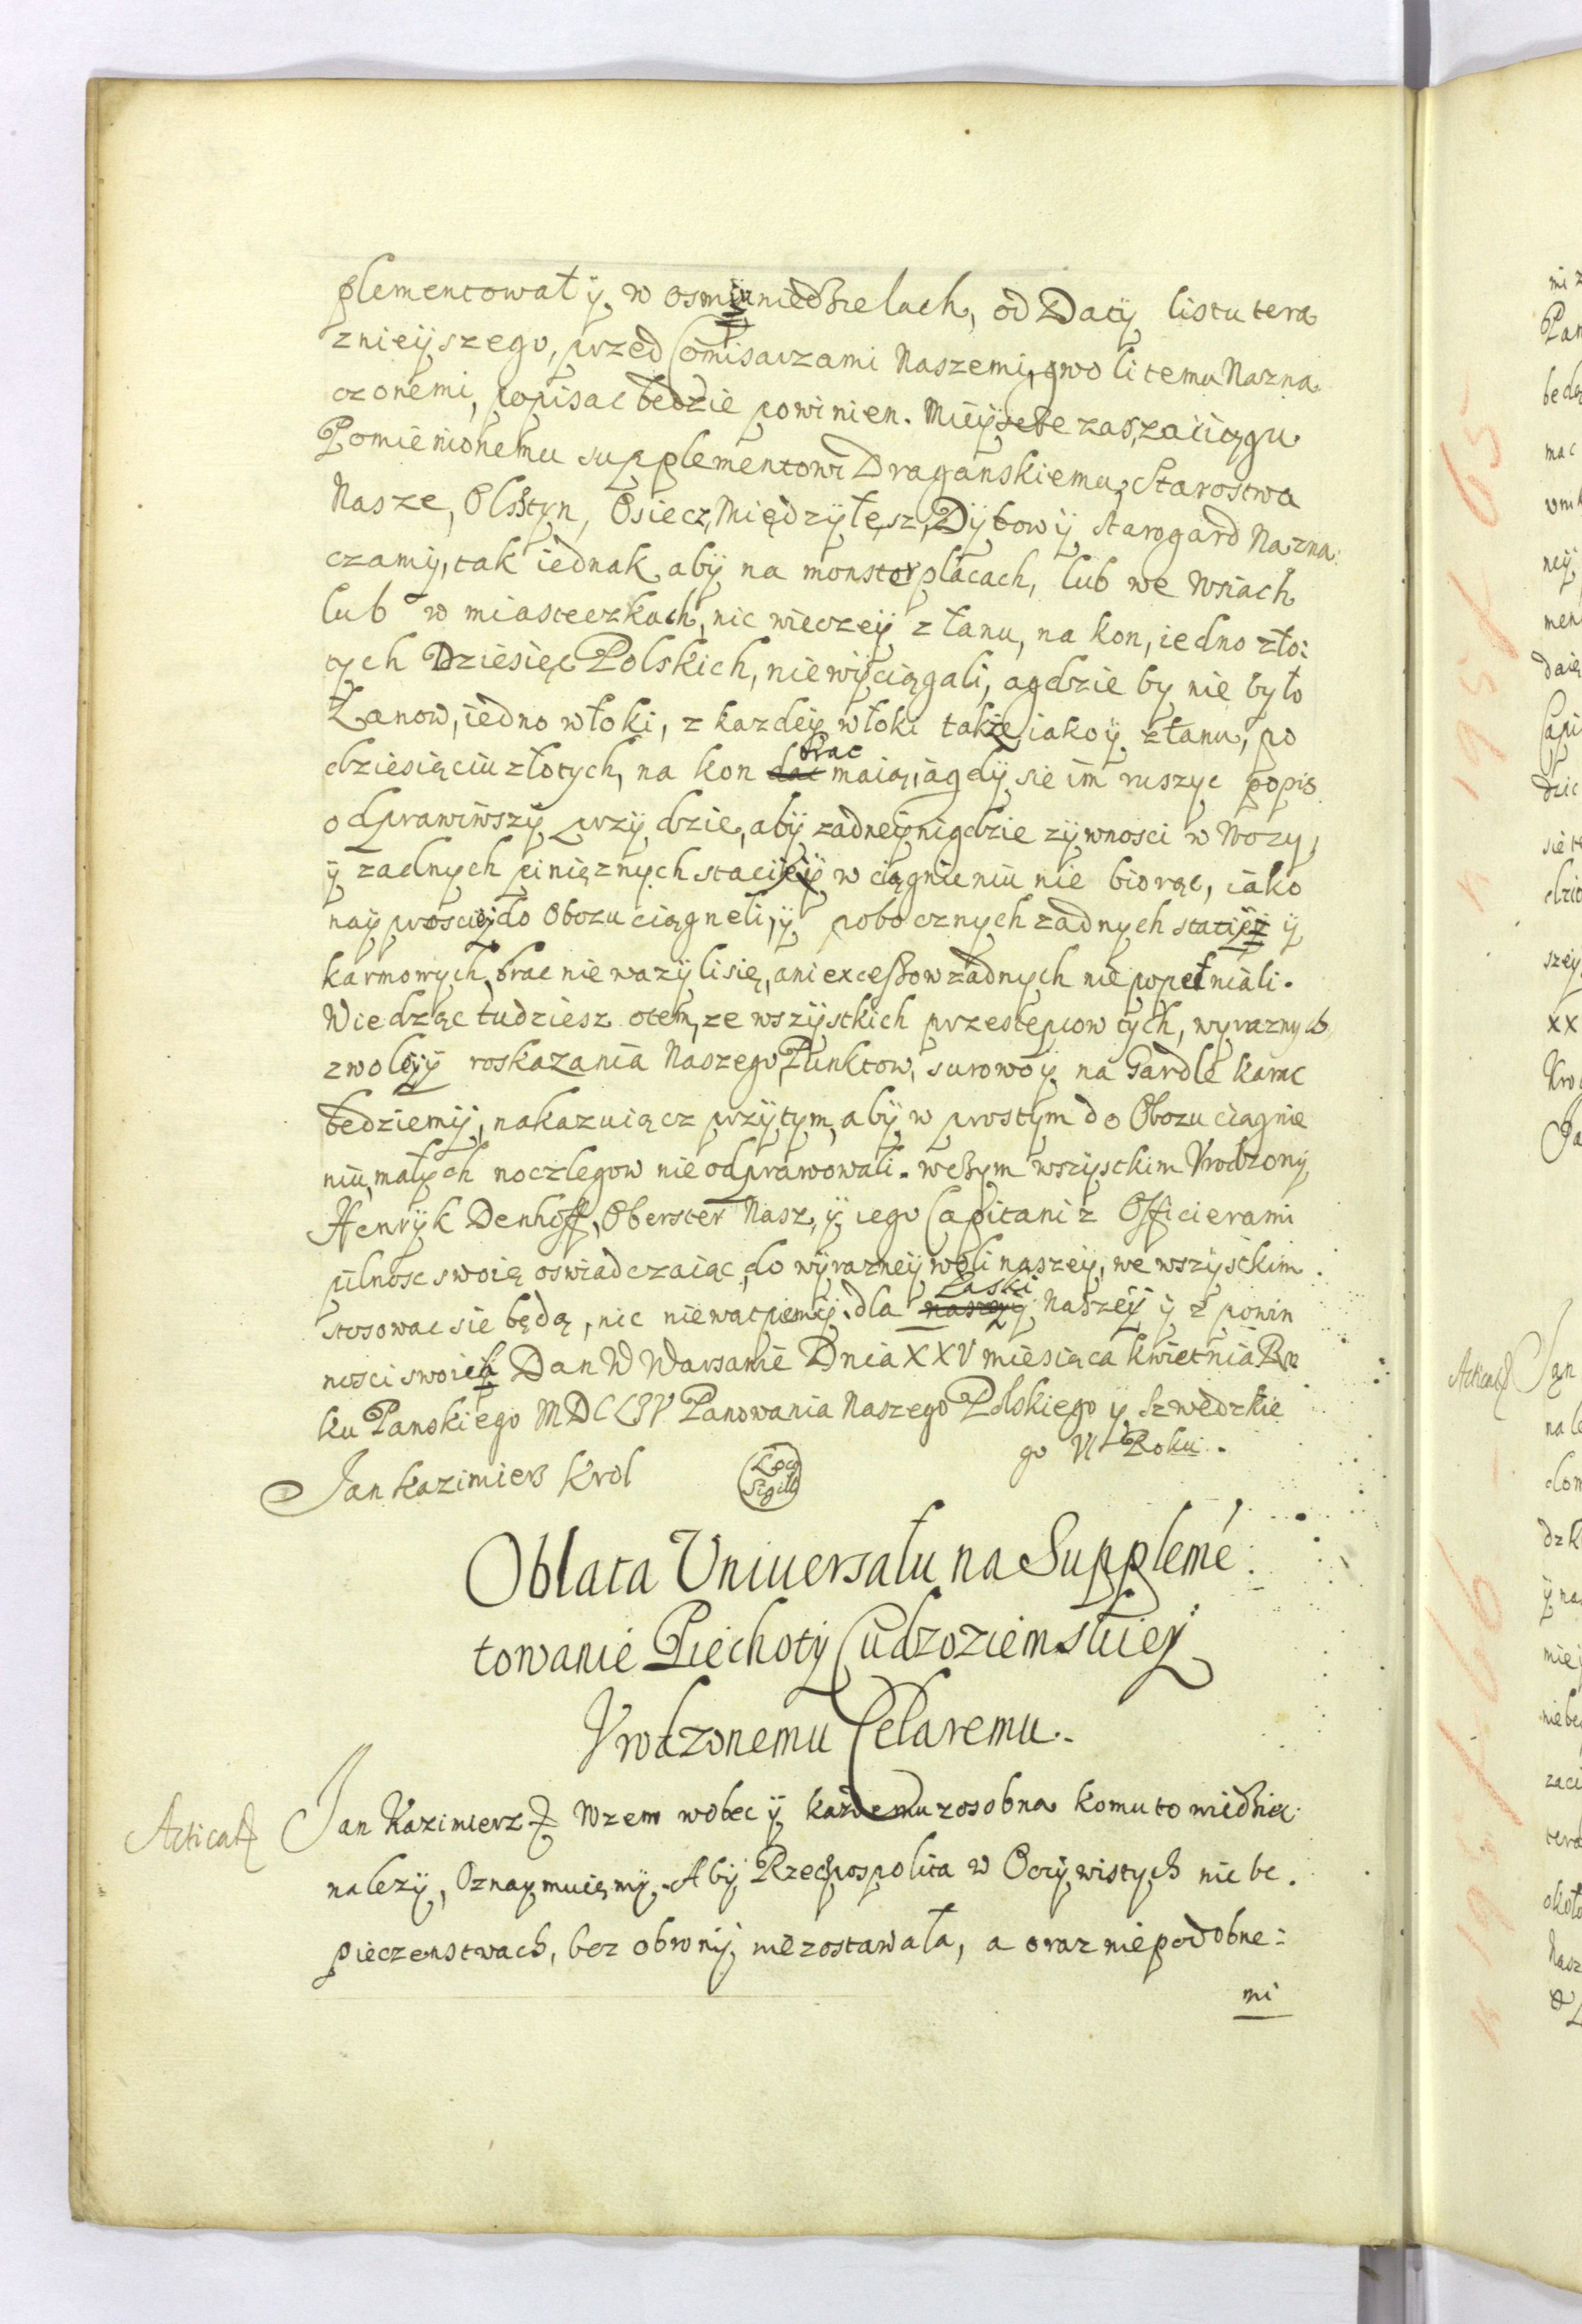 plementowały w osmiu niedzielach, od Daty listu tera
znieyszego, przed Comisarzami Naszemi, gwoli temu Nazna
czonemi, popisac będzie powinien. Mieysce zas zaciągu
Pomienionemu supplementowi Draganskiemu, Starostwa
Nasze, Olsztyn, Osiecz, Międzyłęsz, Dybow y Starogard Nazna
czamy, tak iednak aby na monsterplacach, lub we Wsiach
lub w miasteczkach, nic wieczey z łanu, na kon, iedno zło:
tych Dziesięc Polskich, nie wyciągali, a gdzie by nie było
Łanow, iedno włoki, z kazdey włoki takze iako y z łanu, po
dziesiąciu złotych, na kon brac maią, a gdy sie im ruszyc popis
odprawiwszy przydzie, aby zadney nigdzie zywnosci w Wozy,
y zadnych pinięznych staciy w ciągnieniu nie biorąc, iako
nayprosciey do Obozu ciągneli, y pobocznych zadnych staciy y
karmowych, brac nie wazyli się, ani excessow zadnych nie popełniali.
Wiedząc tudziesz otem, ze wszystkich przestepcow tych, wyraznych
z woley y roskazania Naszego, Punktow, surowo y na Gardle karac
bedziemy, nakazuiącz przytym, aby w prostym do Obozu ciągnie
niu, małych noczlegow nie odprawowali. w czym wszyschim Vrodzony
Henryk Denhoff, Oberster Nasz, y iego Capitani z Officierami
pilnosc swoię oswiadczaiąc, do wyrazney woli naszey, we wszyschim
stosowac sie będą, nic nie wątpiemy, dla Łaski Naszey y z powin
nosci swoich Dan W Warsawie Dnia XXV miesiąca kwietnia Ro
ku Panskiego MDCLIV Panowania Naszego Polskiego y Szwedzkie
go VI Roku.
Jan Kazimierz Krol
Loco Sigilli
Oblata Vniuersału na Suppleme
towanie Piechoty Cudzoziemskiey
Vrodzonemu Celaremu.
Acticat
Jan Kazimierz Wzem wobec y kazdemu zosobna komu to wiedziec
nalezy, Oznaymuięmy. Aby Rzeczpospolita w Oczywistych niebe.
pieczenstwach, bez obrony nie zostawała, a oraz niepodobne:
mi